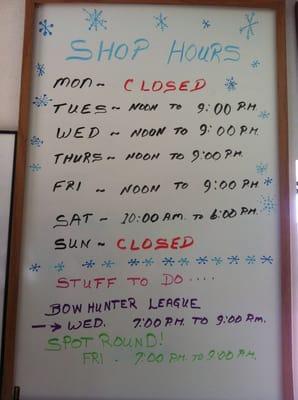 SHOP HOURS
MON ~ CLOSED
TUES ~ NOON TO 9:00 P.M.
WED ~ NOON TO 9:00 P.M.
THURS ~ NOON TO 9:00 P.M.
FRI ~ NOON TO 9:00 P.M.
SAT ~ 10:00 A.M. TO 6:00 P.M.
SUN ~ CLOSED
STUFF TO DO ....
BOWHUNTER LEAGUE
→ WED. 7:00 P.M. TO 9:00 P.M.
SPOT ROUND!
FRI - 7:00 P.M. TO 9:00 P.M.